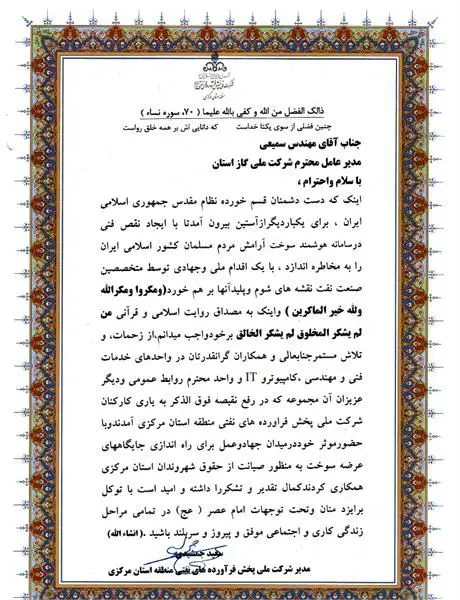 ذالک الفضل من الله و کفی بالله علیما ( ۷۰، سوره نساء )
چنین فضلی از سوی یکتا خداست که دانایی اش بر همه خلق رواست
جناب آقای مهندس سمیعی
مدیر عامل محترم شرکت ملی گاز استان
با سلام واحترام ،
اینک که دست دشمنان قسم خورده نظام مقدس جمهوری اسلامی
ایران ، برای یکباردیگرازآستین بیرون آمدتا با ایجاد نقص فنی
درسامانه هوشمند سوخت آرامش مردم مسلمان کشور اسلامی ایران
را به مخاطره اندازد ، با یک اقدام ملی وجهادی توسط متخصصین
صنعت نفت نقشه های شوم وپلیدآنها بر هم خورد(ومکروا ومکرالله
والله خیر الماکرین ) واینک به مصداق روایت اسلامی و قرآنی من
لم یشکر المخلوق لم یشکر الخالق برخودواجب میدانم،از زحمات، و
تلاش مستمرجنابعالی و همکاران گرانقدرتان در واحدهای خدمات
فنی و مهندسی ،کامپیوترو IT و واحد محترم روابط عمومی ودیگر
عزیزان آن مجموعه که در رفع نقیصه فوق الذکر به یاری کارکنان
شرکت ملی پخش فراورده های نفتی منطقه استان مرکزی آمدندوبا
حضورموثر خوددرمیدان جهادوعمل برای راه اندازی جایگاههای
عرضه سوخت به منظور صیانت از حقوق شهروندان استان مرکزی
همکاری کردندکمال تقدیر و تشکررا داشته و امید است با توکل
برایزد منان وتحت توجهات امام عصر ( عج) در تمامی مراحل
زندگی کاری و اجتماعی موفق و پیروز و سربلند باشید .( انشاء الله )
مدیر شرکت ملی پخش فرآورده های نفتی منطقه استان مرکزی